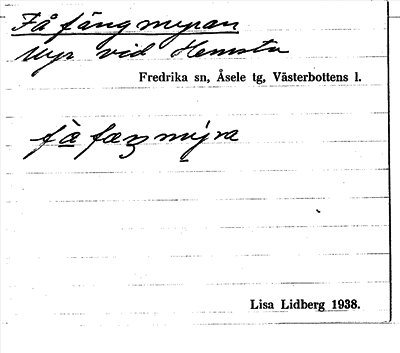 Få fängmyran
Myr vid Hemsta
Fredrika sn, Åsele tg, Västerbottens l.
Lisa Lidberg 1938.